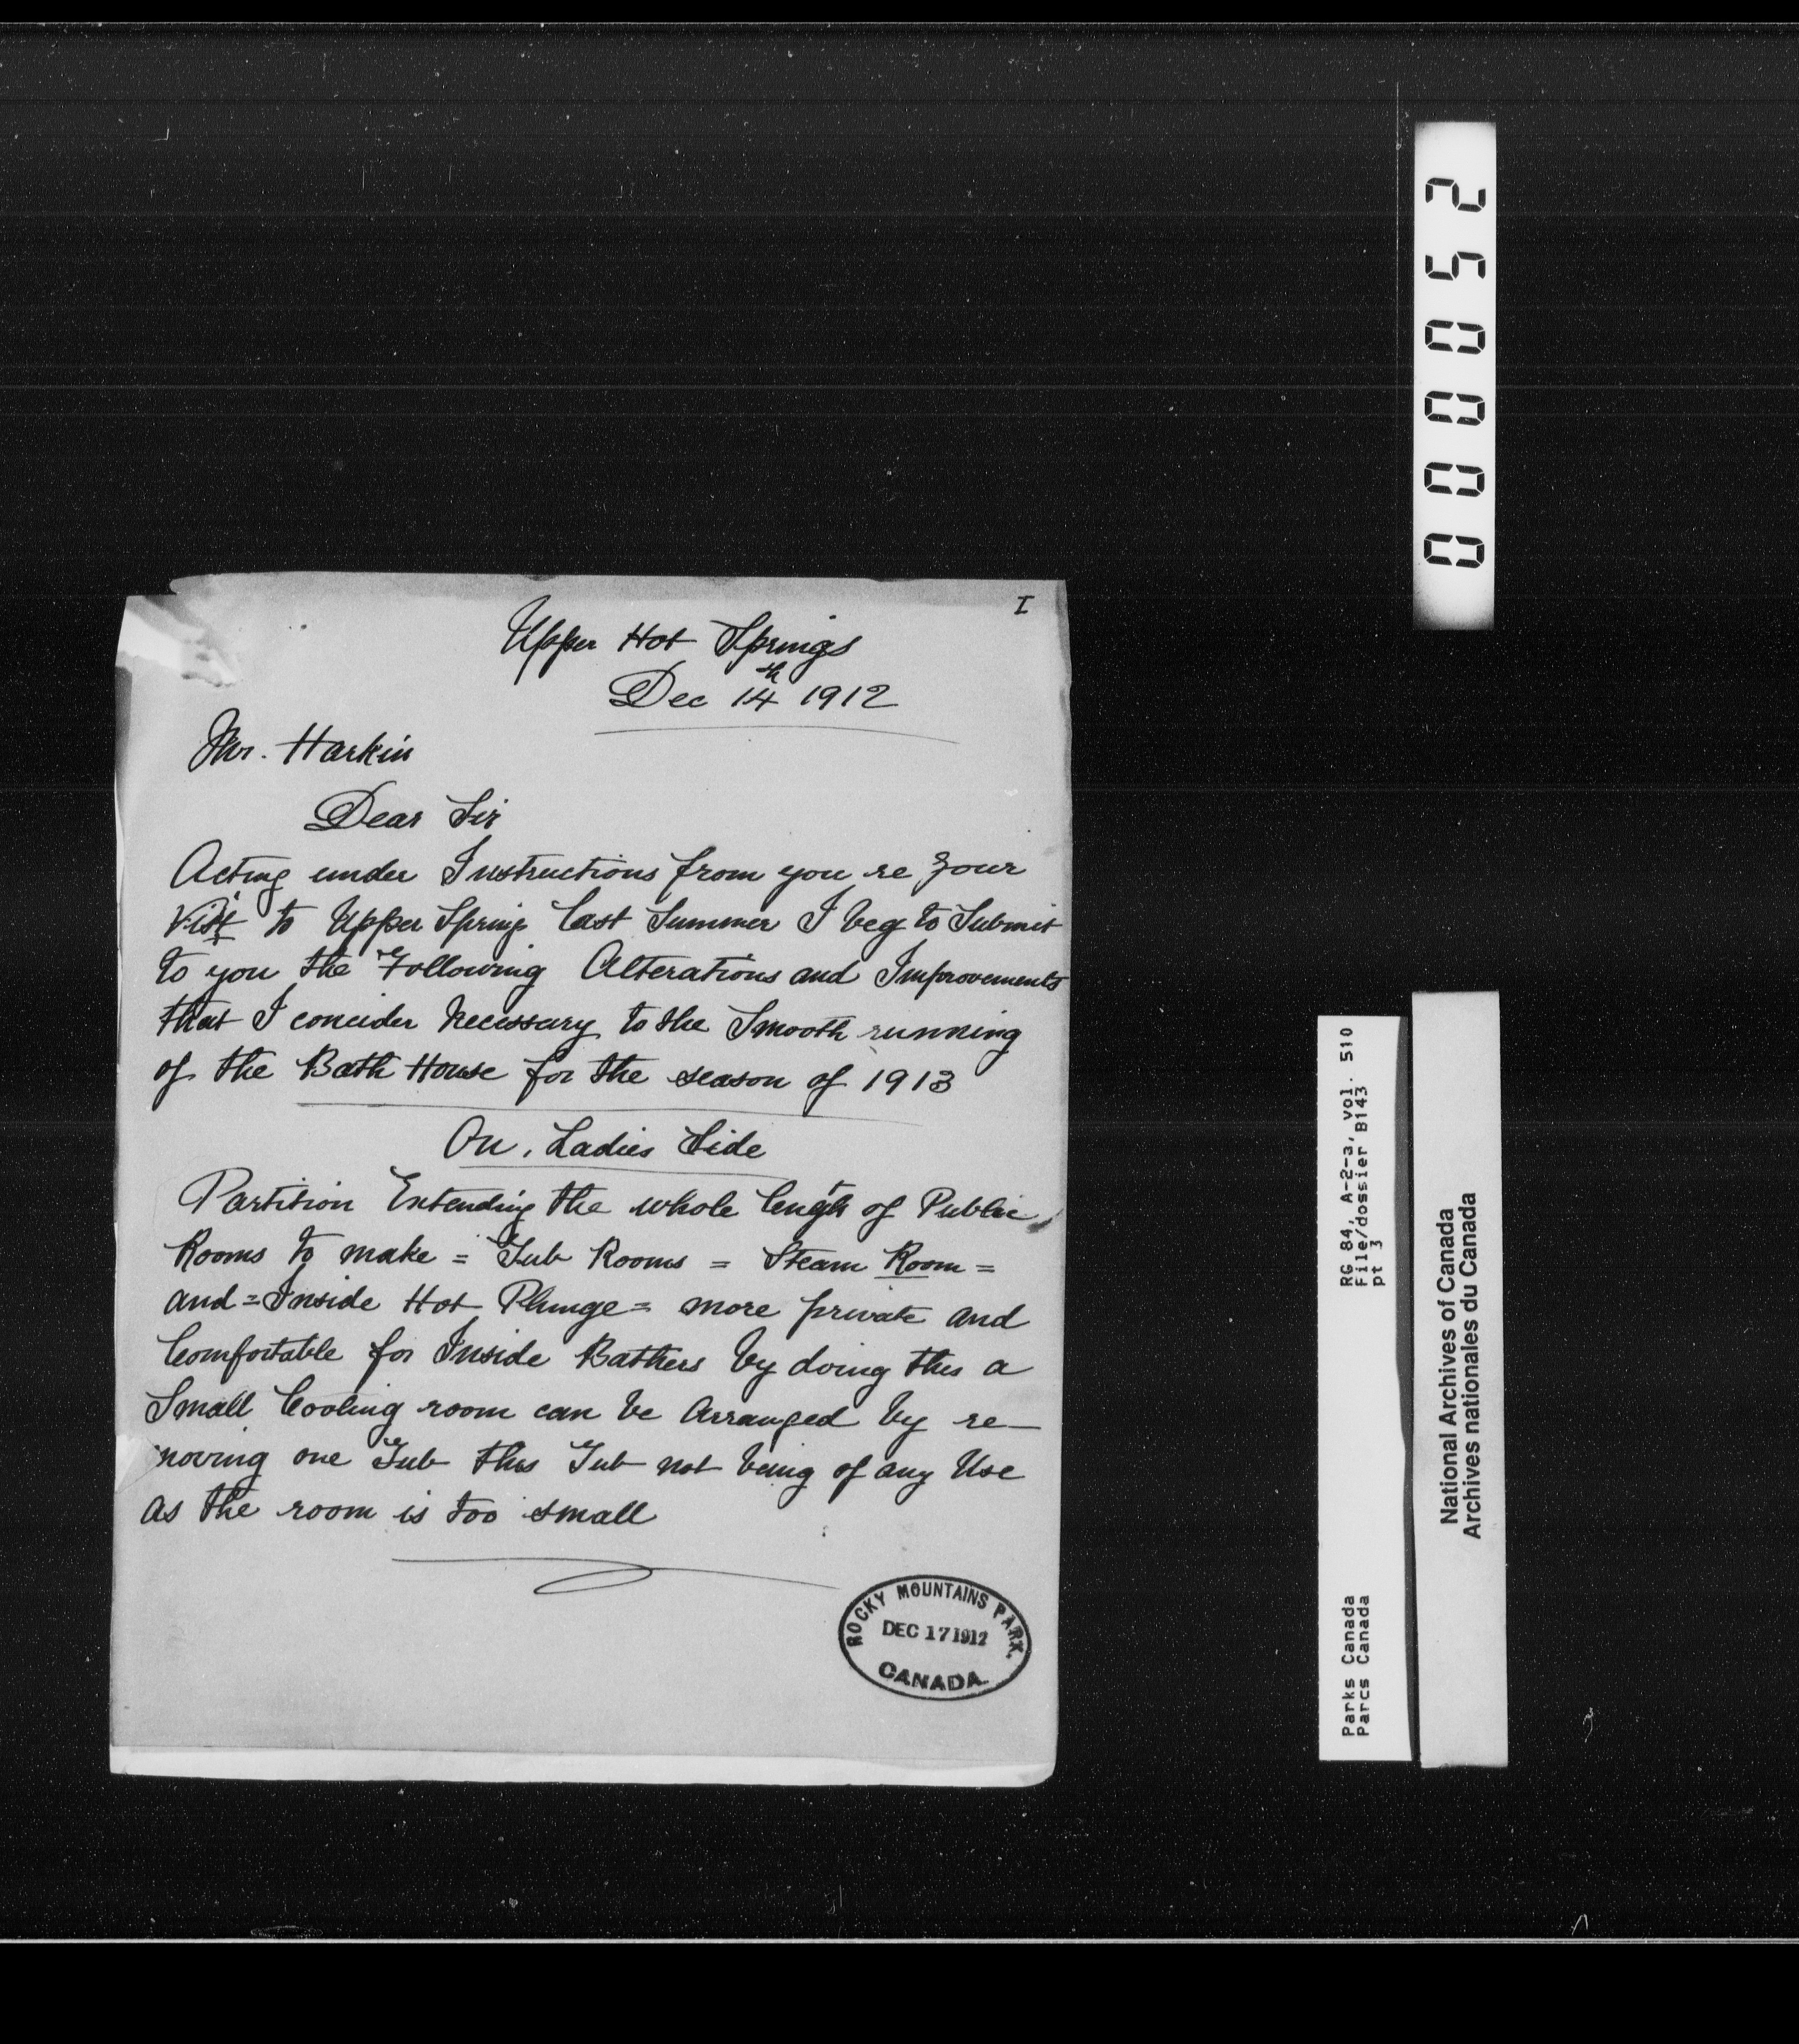 I
Upper Hot Springs
Dec 14th 1912
Mr. Harkin
Dear Sir
Acting under Instructions from you re your
Visit to Upper Spring last Summer I beg to Submit
to you the Following Alterations and Improvements
that I concider Necessary to the Smooth running
of the Bath House for the season of 1913
On. Ladies Side
Partition Extending the whole length of Public
Rooms to make = Tub Rooms = Steam Room =
and = Inside Hot Plunge = more private and
Comfortable for Inside Bathers by doing this a
Small Cooling room can be Arranged by re-
moving one Tub this Tub not being of any Use
as the room is too small
ROCKY MOUNTAINS PARK.
DEC 17 1912
CANADA.
000052
RG 84, A-2-3, vol. 510
File/dossier B143
pt 3
Parks Canada
Parcs Canada
National Archives of Canada
Archives nationales du Canada